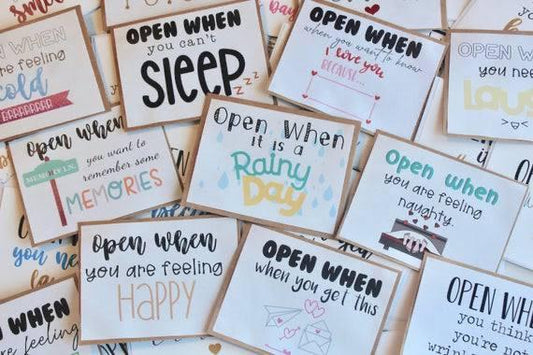 OPEN WHEN
you are feeling
cold
BRRRRRRRR
OPEN WHEN
you can't
SLEEP
zzz
OPEN WHEN
when you want to know
I love you
BECAUSE...
OPEN WHEN
you need
Open When
you want to
remember some
MEMORIES
MEMORY LN.
Open When
it is a
Rainy
Day
Open when
you are feeling
naughty.
Open when
you are feeling
HAPPY
OPEN WHEN
when you get this
OPEN WHEN
you think
you're not
OPEN WHEN
you are feeling